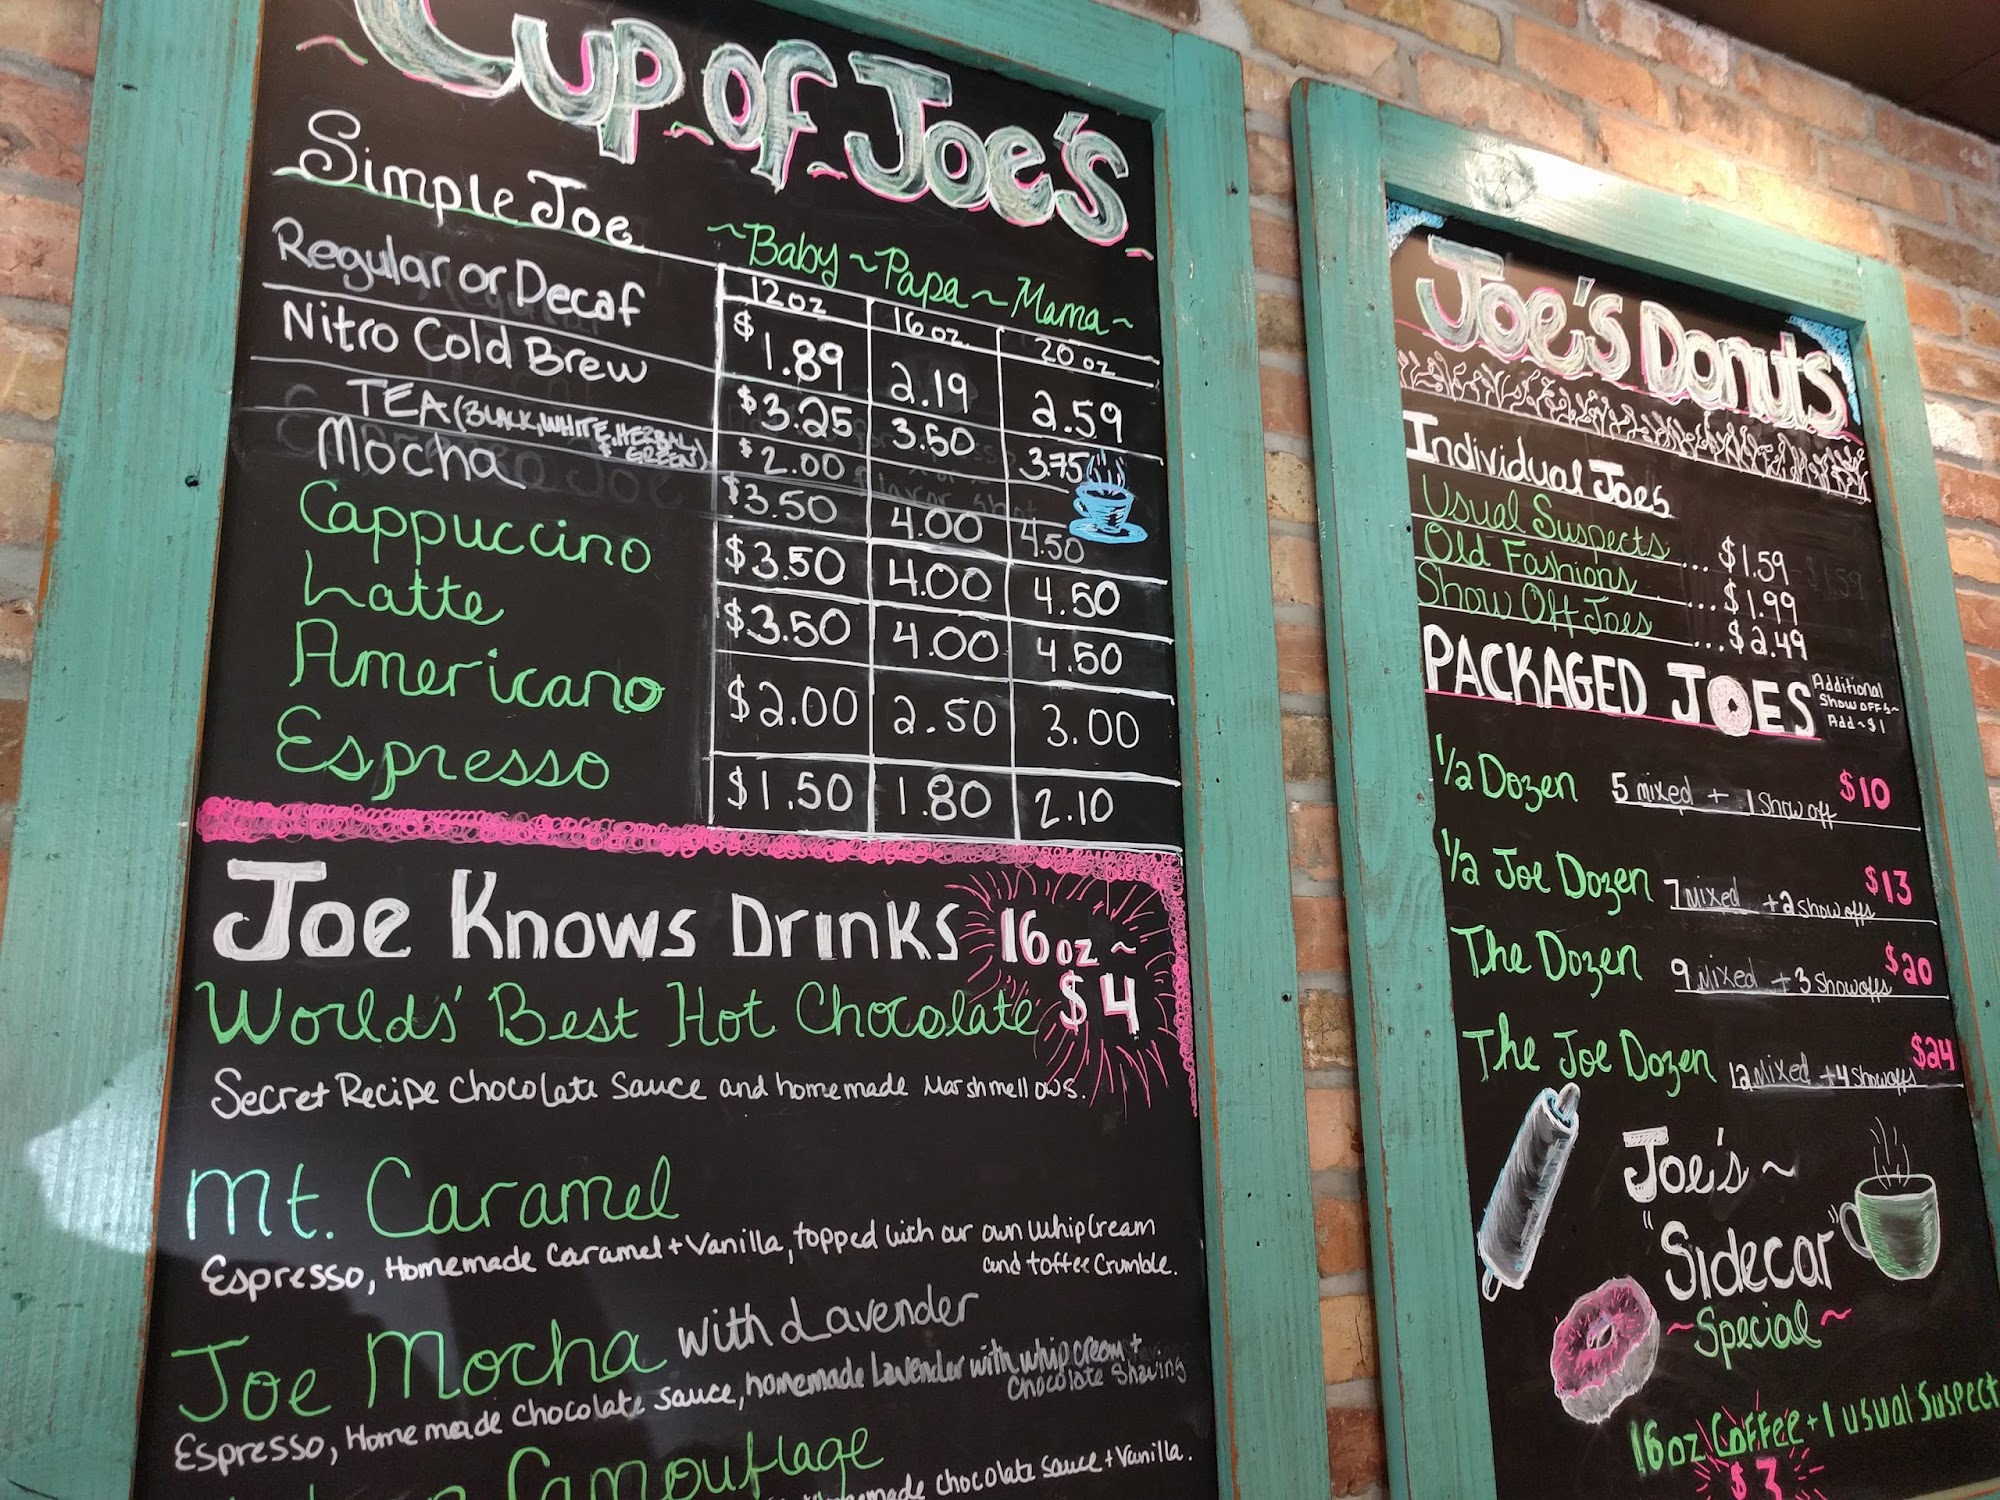 Cup of Joe's
Simple Joe
~Baby~Papa~Mama~
12oz 16oz. 20oz
Regular or Decaf $1.89 2.19 2.59
Nitro Cold Brew $3.25 3.50 3.75
TEA (BLACK, WHITE, HERBAL, $2.00
& GREEN)
Mocha $3.50 4.00 4.50
Cappuccino $3.50 4.00 4.50
Latte $3.50 4.00 4.50
Americano $2.00 2.50 3.00
Espresso $1.50 1.80 2.10
Joe Knows Drinks 16oz~
$4
Worlds' Best Hot Chocolate
Secret Recipe Chocolate Sauce and homemade Marshmellows.
Mt. Caramel
Espresso, Homemade Caramel + Vanilla, topped with our own Whip Cream
and toffee Crumble.
Joe Mocha with Lavender
Espresso, Homemade Chocolate Sauce, homemade Lavender with whip cream +
Chocolate Shaving
Camouflage
chocolate sauce + Vanilla.
Joe's Donuts
Individual Joe's
Usual Suspects ... $1.59
Old Fashions ... $1.99
Show Off Joes ... $2.49
PACKAGED JOES
Additional
Show OFF's~
Add~$1
1/2 Dozen 5 mixed + 1 Show off $10
1/2 Joe Dozen 7 Mixed + 2 Show offs $13
The Dozen 9 Mixed + 3 Showoffs $20
The Joe Dozen 12 Mixed + 4 Showoffs $24
Joe's~
"Sidecar"
~Special~
16oz Coffee + 1 usual Suspect
$3